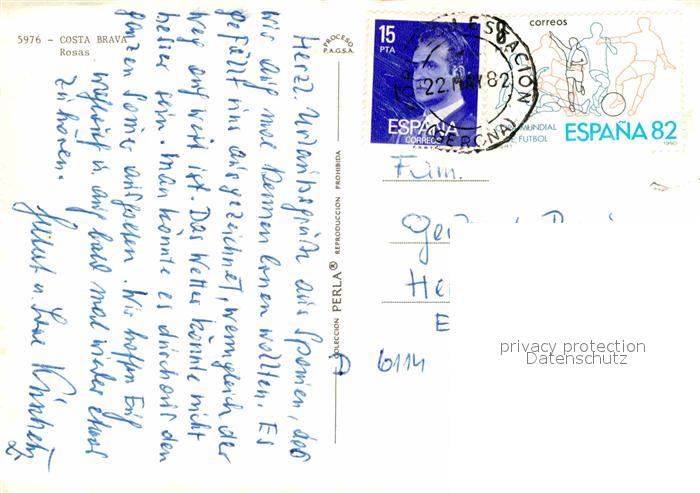 5976 - COSTA BRAVA
Rosas
PROCESO
P.A.G.S.A.
Herzl. Urlaubsgrüße aus Spanien, das
wir auch mal kennen lernen wollten. Es
gefällt uns ausgezeichnet, wenngleich der
Weg auch weit ist. Das Wetter könnte nicht
besser sein. Man könnte es durchaus den
ganzen Sommer aushalten. Wir hoffen Euch
u. auf bald mal wieder etwas
zu hören.
u.
COLECCION PERLA® REPRODUCCION PROHIBIDA
15
PTA
ESPAÑA
CORREOS
ESTACION
22 MAY 82
(GERONA)
correos
MUNDIAL
DE FUTBOL
ESPAÑA 82
1980
Fam.
He
E
D 6114
privacy protection
Datenschutz